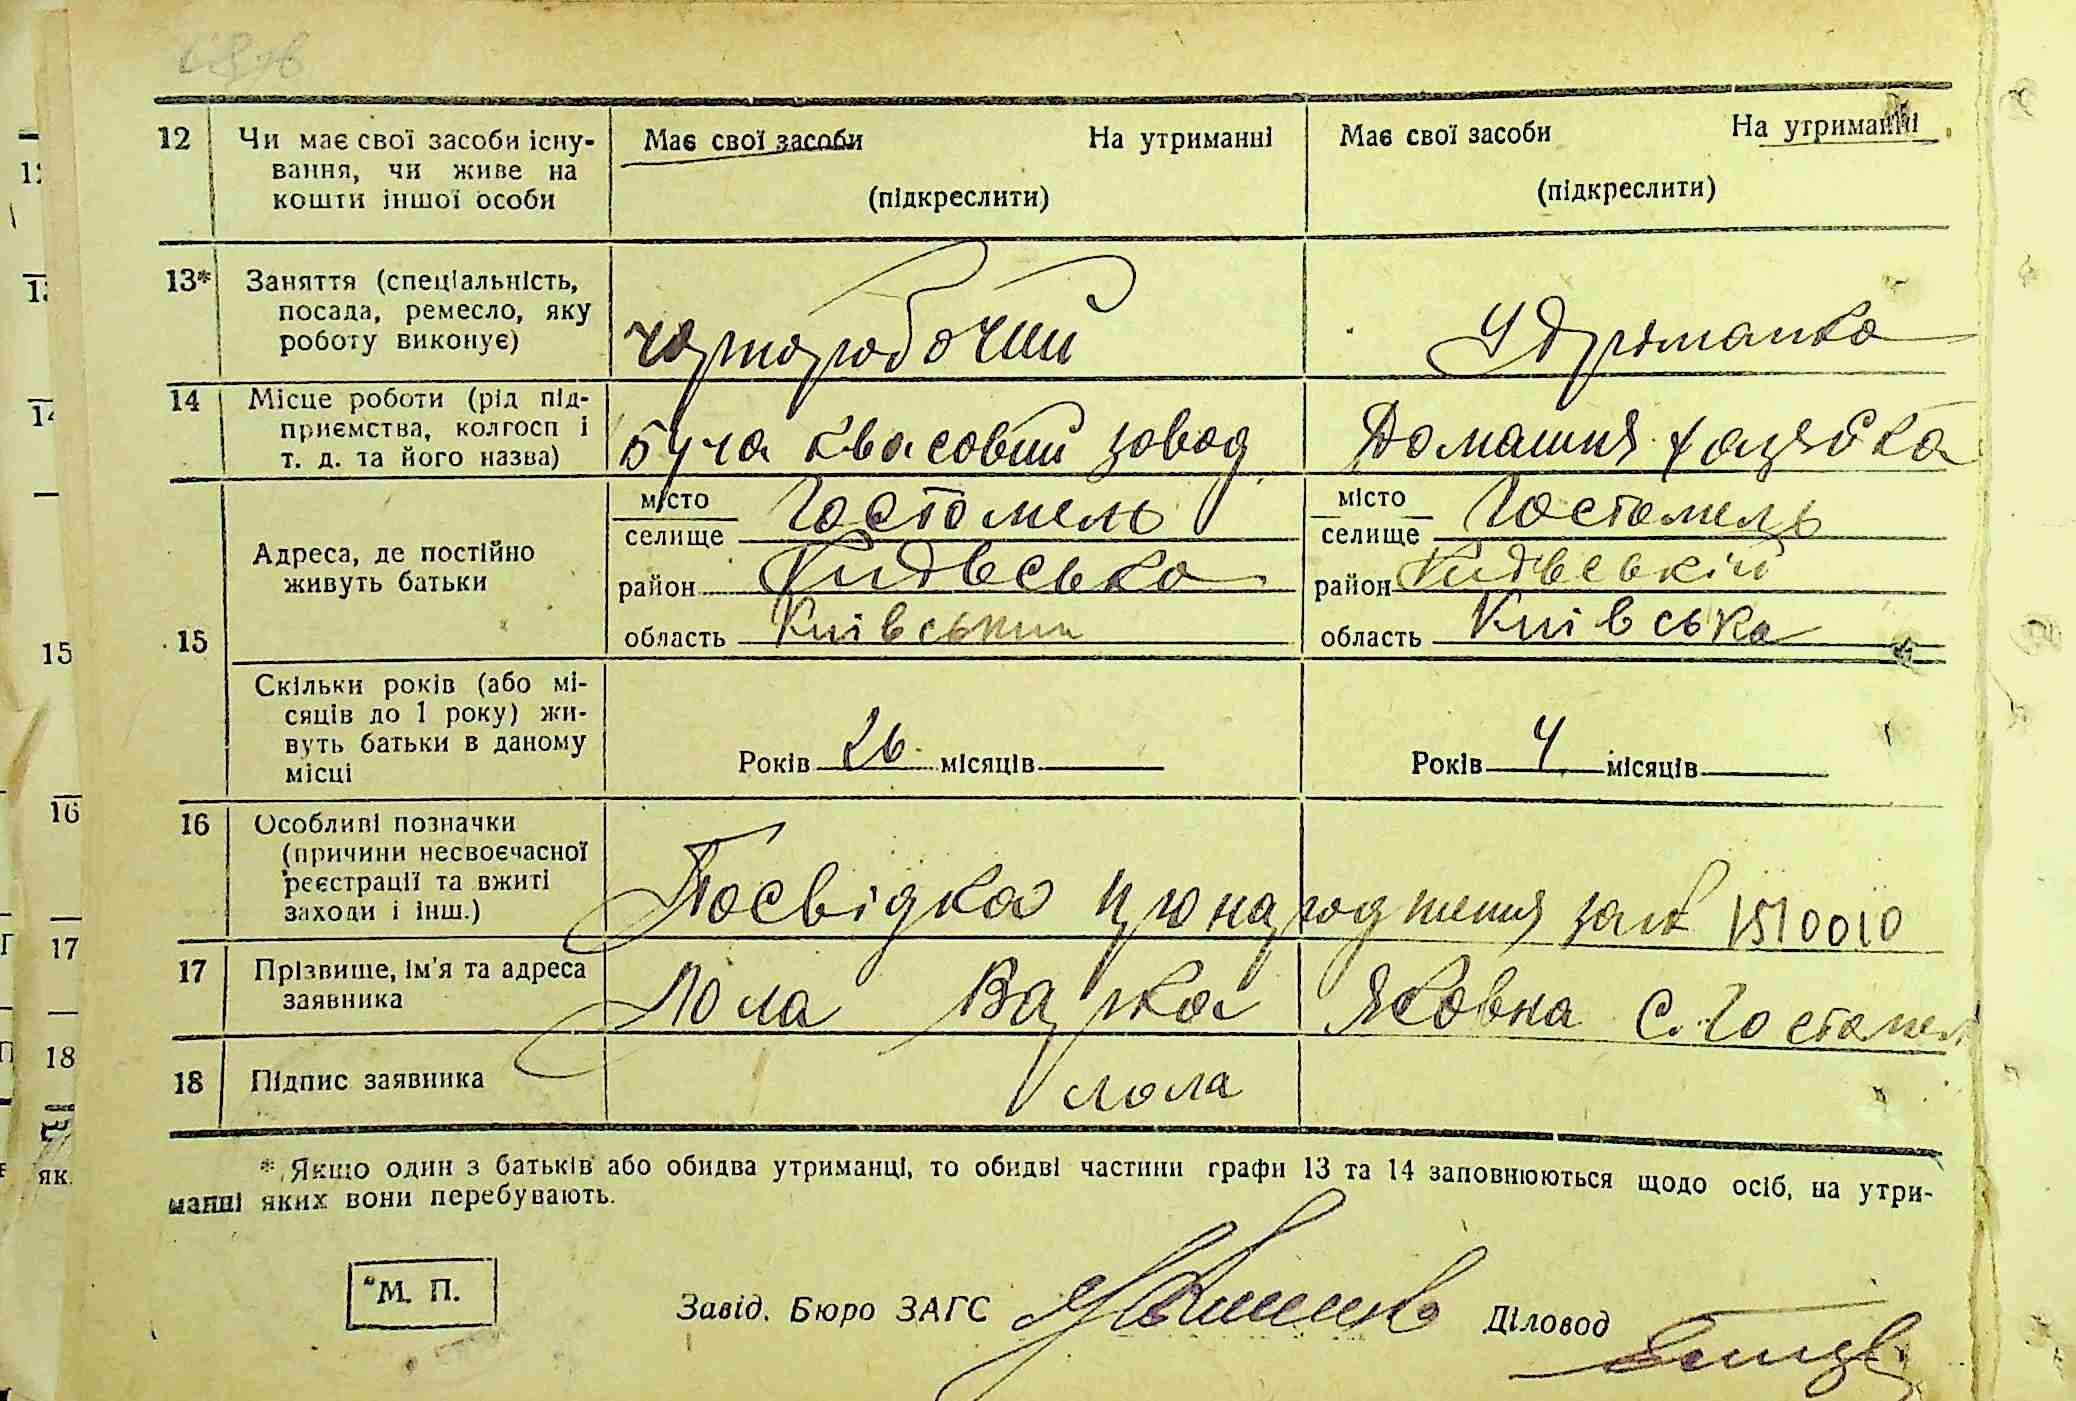 12 Чи має свої засоби існу-
вання, чи живе на
кошти іншої особи
Має свої засоби На утриманні
(підкреслити)
Має свої засоби На утриманні
(підкреслити)
13* Заняття (спеціальність,
посада, ремесло, яку
роботу виконує)
чорноробочий
Утриманка
14 Місце роботи (рід під-
приємства, колгосп і
т. д. та його назва)
Буча квасовий завод
Домашня хазяйка
15 Адреса, де постійно
живуть батьки
місто
селище Гостомель
район Київська
область Київський
місто
селище Гостомель
район Київський
область Київська
Скільки років (або мі-
сяців до 1 року) жи-
вуть батьки в даному
місці
Років 26 місяців
Років 4 місяців
16 Особливі позначки
(причини несвоєчасної
реєстрації та вжиті
заходи і інш.)
Посвідка про народження за № 1510010
17 Прізвище, ім'я та адреса
заявника
Лола Варка Яковна С. Гостомель
18 Підпис заявника
Лола
* Якщо один з батьків або обидва утриманці, то обидві частини графи 13 та 14 заповнюються щодо осіб, на утри-
манні яких вони перебувають.
М. П.
Завід. Бюро ЗАГС
Діловод
12
13
14
15
16
17
18
як